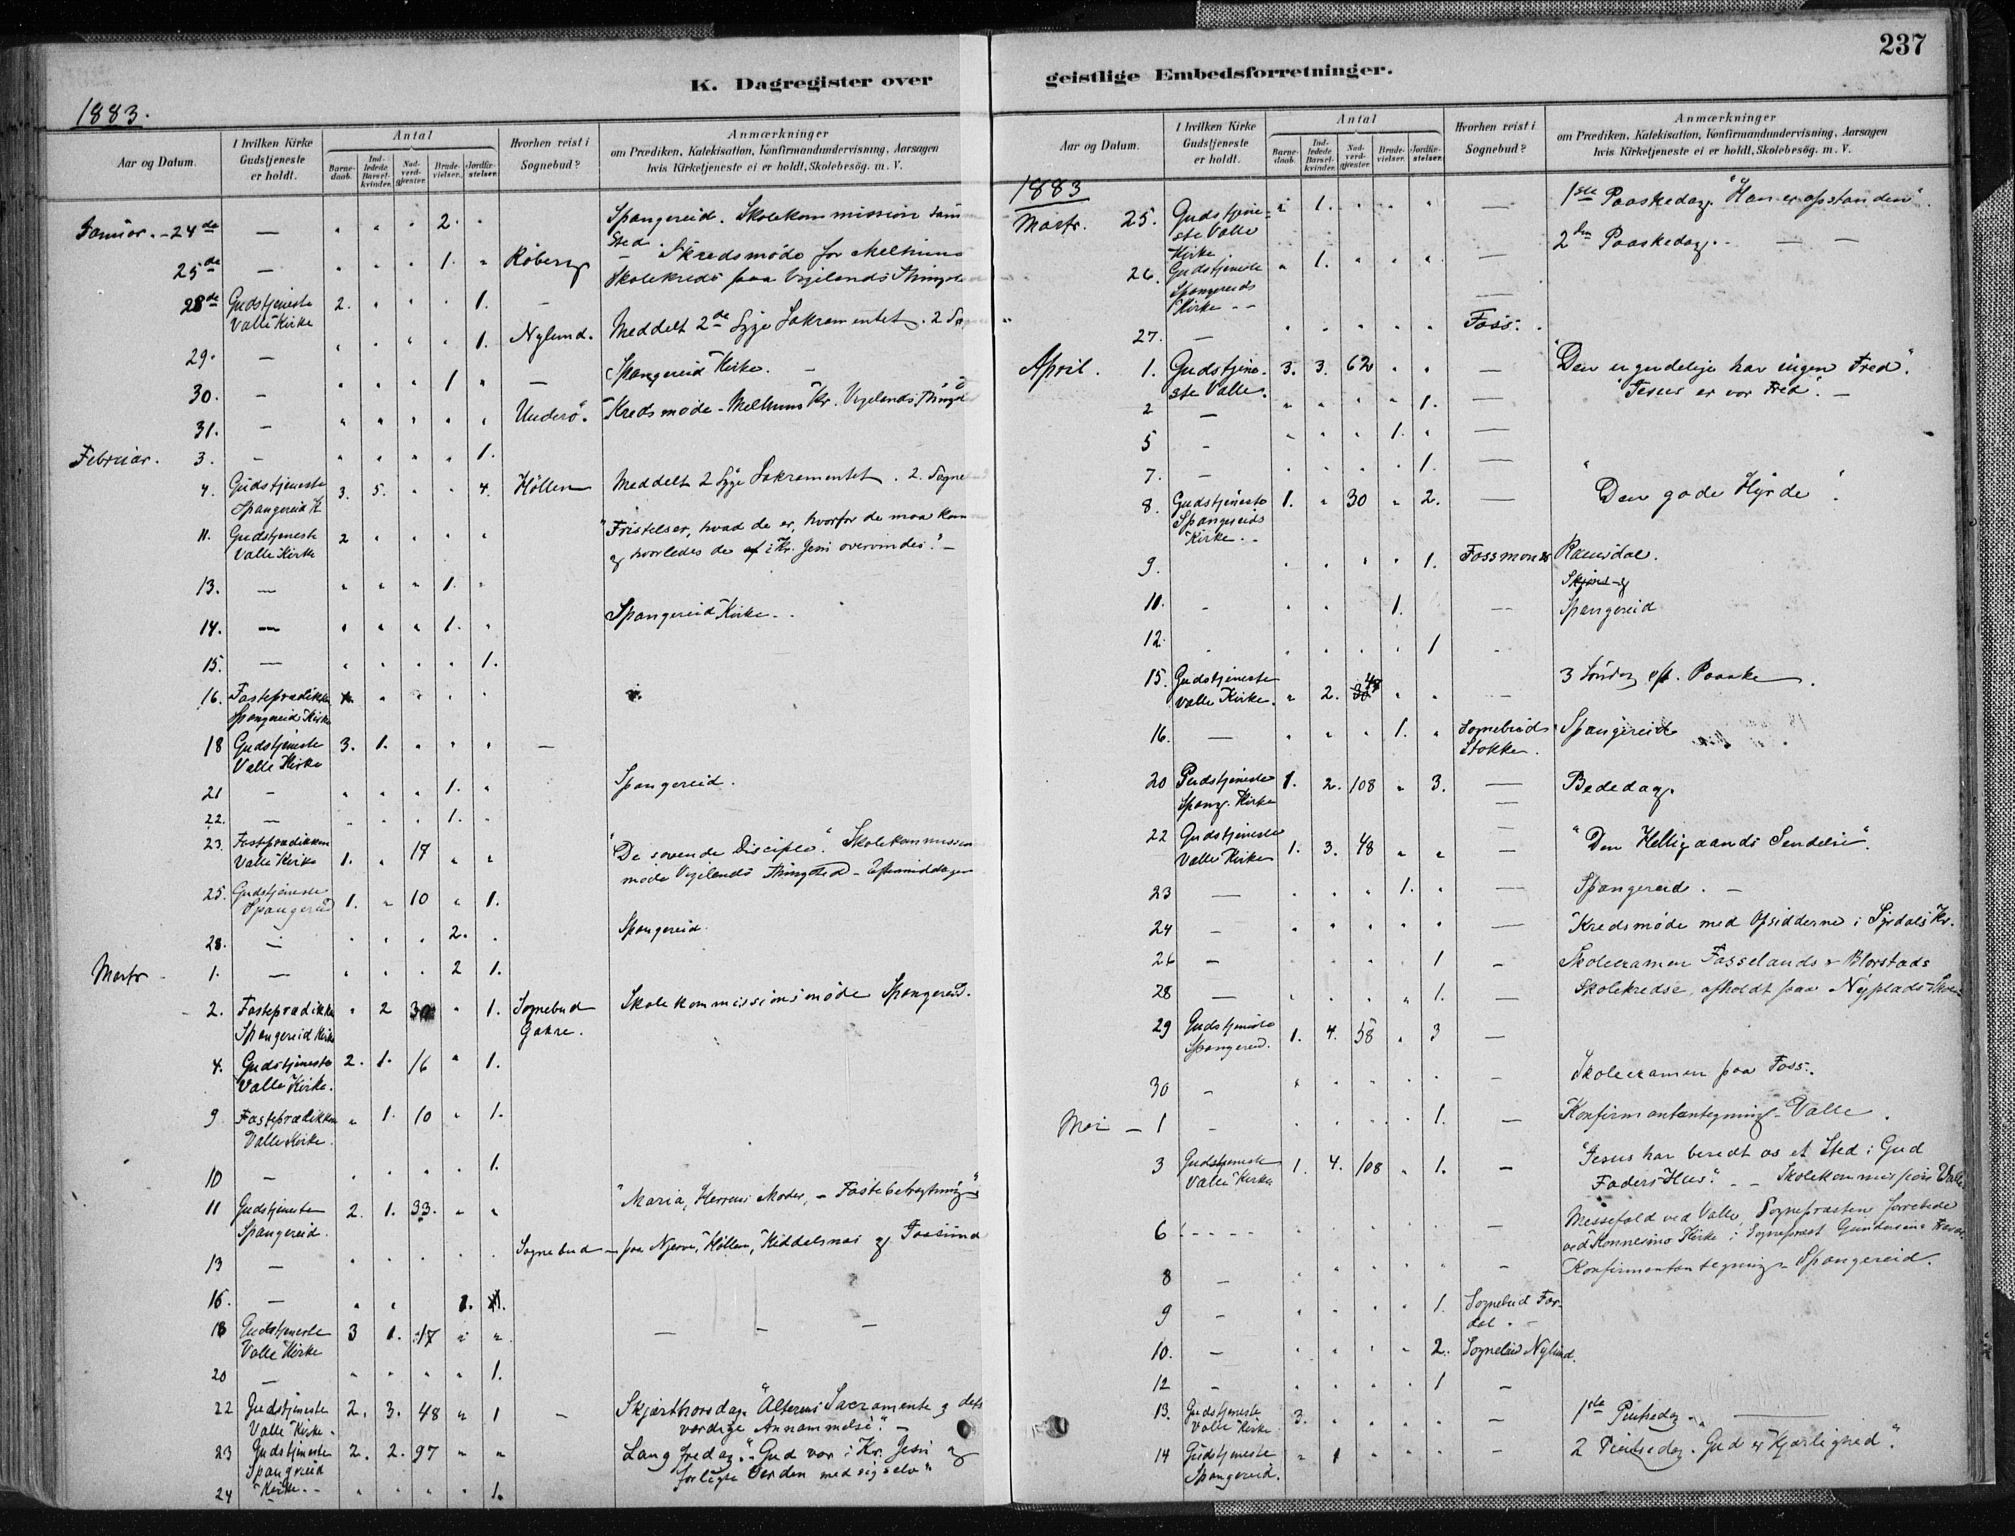 237
K. Dagregister over
geistlige Embedsforretninger.
1883.
Aar og Datum.
I hvilken Kirke Gudstjeneste er holdt.
Antal
Barnedaab.
Indledede Barselkvinder.
Nadverdgjester.
Brudevielser.
Jordfæstelser.
Hvorhen reist i Sognebud?
Anmærkninger
om Prædiken, Katekisation, Konfirmandundervisning, Aarsagen
hvis Kirketjeneste ei er holdt, Skolebesøg. m. V.
Januar. - 24de — " " " 2. " Spangereid. Skolekommission sam
Sted - Kredsmøde for Melhuus
25de — " " " 1. " Røberg Skolekreds paa Vigelands Thingsted
28de Gudstjeneste 2. " " " 1. -
Valle Kirke
29. — " " " " 1. Nylund. Meddelt 2de Syge Sakramentet. 2
30. — " " " 1 " — Spangereid Kirke. -
31. — " " " " " Underø. Kredsmøde - Melhuus Kr. Vigelands
Februar. 3. — " " " " 1.
4. Gudstjeneste 3. 5. " " 4. Høllen Meddelt 2 Syge Sakramentet. 2.
Spangereid K.
11. Gudstjeneste 2 " " " " "Fristelser, hvad de er, hvorfor de maa kom
Valle Kirke og hvorledes de af i Kr. Jesu overvindes". -
13. — " " " 1. "
14. — " " " 1. " Spangereid Kirke. -
15. — " " " " 1.
16. Fasteprædiken " " " "
Spangereid Kirke
18 Gudstjeneste 3. 1. " " " —
Valle Kirke
21 - " " " 1. " Spangereid.
22. — " " " 1. "
23. Fasteprædiken 1. " 17 " " "De sovende Disciple". Skolekommission
Valle Kirke møde Vigelands Thingsted - Eftermiddagen
25. Gudstjeneste 1. " 10 " 1.
Spangereid
28. — " " " 2. " Spangereid.
Marts 1. — " " " 2 1.
2. Fasteprædiken " 2 30 " 1. Sognebud Skolekommissionsmøde Spangereid.
Spangereid Kirke Gahre.
4. Gudstjeneste 2. 1. 16 " 1.
Valle Kirke.
9 Fasteprædiken " 1. 10 " 1.
Valle Kirke.
10 — " " " " 1.
11 Gudstjeneste 2. 1. 33. " " "Maria, Herrens Moder, - Fastebetragtning"
Spangereid.
13 — " " " " " Sognebud - paa Njerve, Høllen, Kiddelsnæs og
16. — " " 1. 1.
18 Gudstjeneste 3 1. 17 " " — — —
Valle Kirke
20 — " " " " 1.
22 Gudstjeneste 2. 3. 48 " 1 - Skjærthorsdag. "Alterens Sacramente og dets
Valle Kirke. værdige Annammelse". -
23 Gudstjeneste 2. 2. 97 " " Langfredag: "Gud var i Kr. Jesu og
Spangereid forligte Verden med sig selv"
24 Kirke. - " " " " 1.
Aar og Datum.
I hvilken Kirke Gudstjeneste er holdt.
Antal
Barnedaab.
Indledede Barselkvinder.
Nadverdgjester.
Brudevielser.
Jordfæstelser.
Hvorhen reist i Sognebud?
Anmærkninger
om Prædiken, Katekisation, Konfirmandundervisning, Aarsagen
hvis Kirketjeneste ei er holdt, Skolebesøg. m. V.
1883
Marts. 25. Gudstjene- " 1. " " " — 1ste Paaskedag. "Han er opstanden".
ste Valle
Kirke 2den Paaskedag. - — —
26. Gudstjeneste " 1. " " " —
Spangereids
Kirke - -
27. — " " " " " Foss.
April. 1. Gudstjene- 3. 3. 62 " " — "Den ugudelige har ingen Fred".
ste Valle. "Jesus er vor Fred". -
2 — " " " " 1. —
5 - " " " 1. " —
7. — " " " " 1. —
8. Gudstjeneste 1. " 30 " 2. — "Den gode Hyrde".
Spangereids
Kirke. -
9. " " " " 1. Fossmones Ramsdal.
11. - " " " 1. — Spangereid
12. " " " " 1 -
15. Gudstjeneste " 2. 48 " " — 3 Søndag eft. Paaske.
Valle Kirke.
16. — " " " 1. " Sognebud Spangereid
Stokke.
20 Gudstjeneste 1. 2. 108 " 3. — Bededag.
Spang. Kirke
22 Gudstjeneste 1. 3. 48 " " — "Den Helligaands Sendelse".
Valle Kirke
23 — " " " 1. " — Spangereid. -
24 — " " " " " — Kredsmøde med Opsidderne i Syrdals Kr.
26 — " " " " 1 - Skoleexamen Fasselands & Blørstads
28 — " " " " 1. — Skolekredse, afholdt paa Nyplads Skole
29 Gudstjeneste 1. 4. 58 " 3 —
Spangereid.
30 - " " " " " - Skoleexamen paa Foss.
Mai - 1 - " " " " 1. - Konfirmantantegning - Valle.
3 Gudstjeneste 1. 4. 108 " 1. - "Jesus har beredt os et Sted i Gud
Valle Kirke Faders Hus". - - Skolekommission Valle
6 - - - - - Messefald ved Valle, Sognepræsten forrettede
ved Konnesmo Kirke i Sognepræst Gundersens
8 — " " " " " - Konfirmantantegning - Spangereid.
9 - " " " " 1. Sognebud Foss-
dal. -
10. - " " " " 2. Sognebud Nylund.
12 - " " " " 1 -
13. Gudstjeneste 3. " " " " - 1ste Pintsedag. -
Valle Kirke
14 Gudstjeneste " 1 " " " - 2 Pintsedag. "Gud er Kjærlighed".
Spangereid.